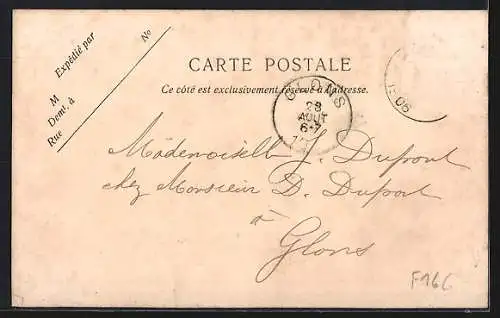 Expédié par
M
Demt. à
Rue
No
CARTE POSTALE
Ce côté est exclusivement réservé à l'adresse.
GLONS
28
AOUT
6-7
Mademoiselle J. Dupont
chez Monsieur D. Dupont
à
Glons
F166